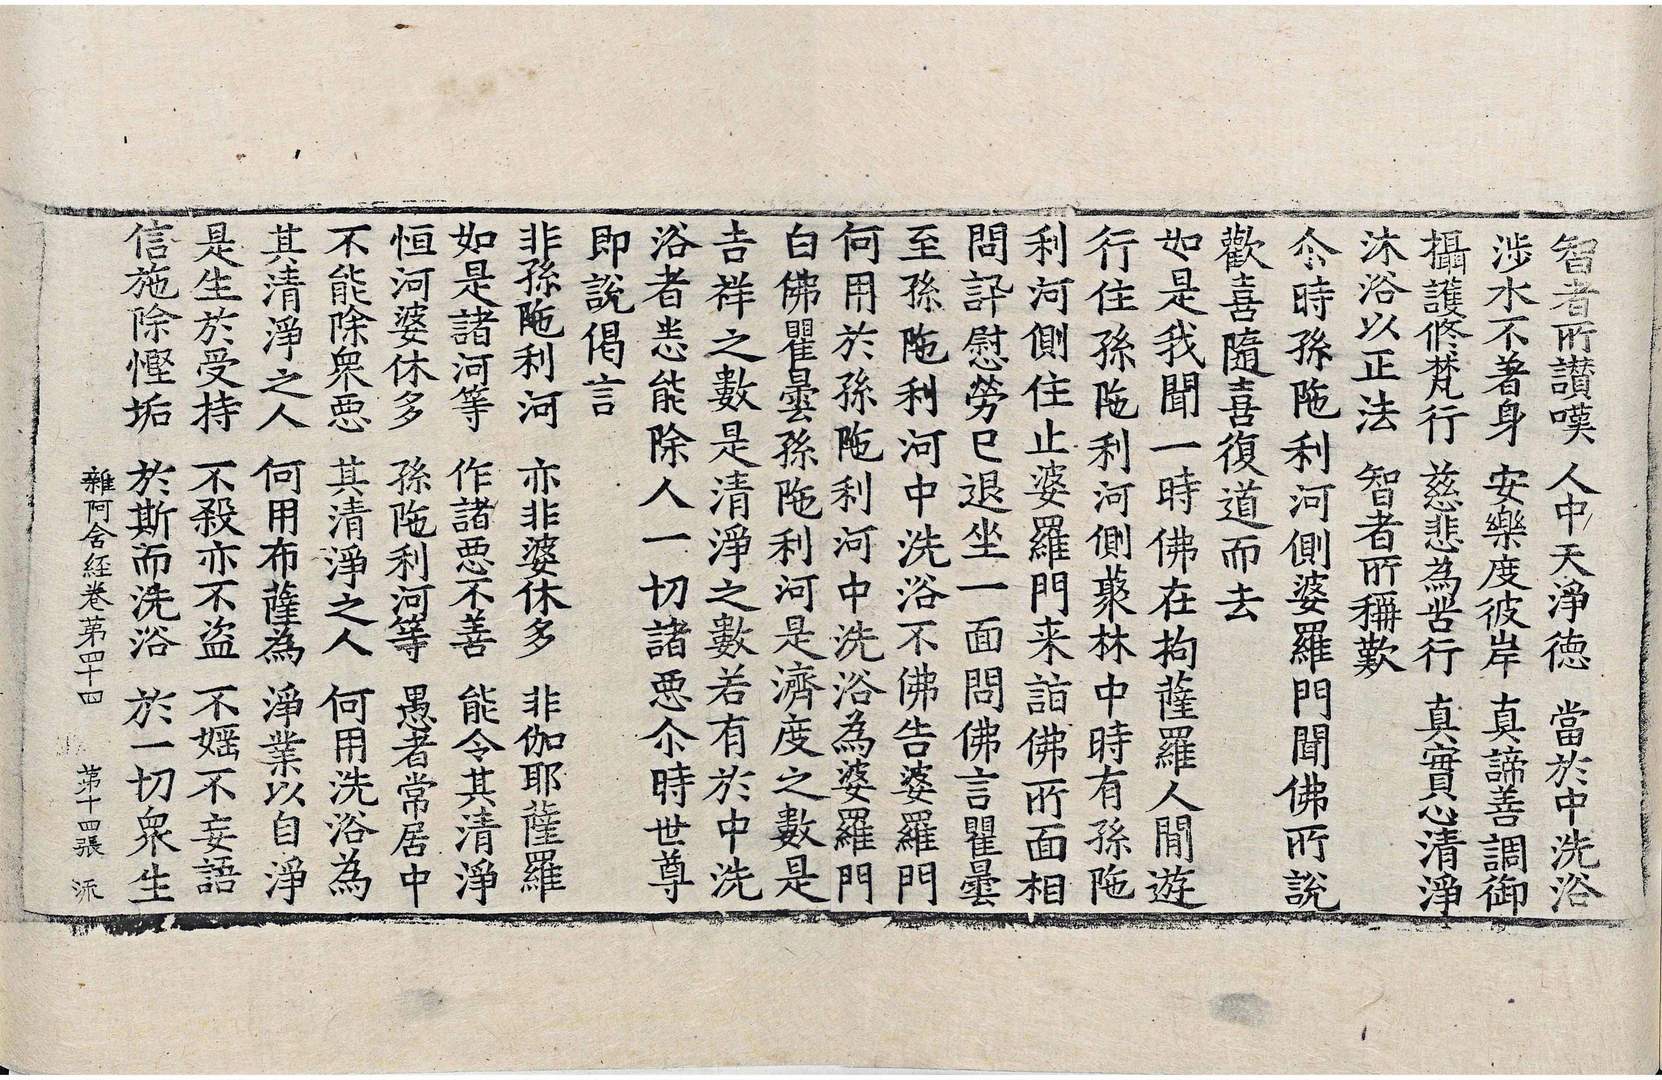 智者所讃嘆　人中天淨德　當於中洗浴
涉水不著身　安樂度彼岸　真諦善調御
攝護修梵行　慈悲為苦行　真實心清淨
沐浴以正法　智者所稱歎
尒時孫陁利河側婆羅門聞佛所說
歡喜隨喜復道而去
如是我聞一時佛在拘薩羅人間遊
行住孫陁利河側藂林中時有孫陁
利河側住止婆羅門来詣佛所面相
問訊慰勞已退坐一面問佛言瞿曇
至孫陁利河中洗浴不佛告婆羅門
何用於孫陁利河中洗浴為婆羅門
白佛瞿曇孫陁利河是濟度之數是
吉祥之數是清淨之數若有於中洗
浴者悉能除人一切諸惡尒時世尊
即說偈言
非孫陁利河　亦非婆休多　非伽耶薩羅
如是諸河等　作諸惡不善　能令其清淨
恒河婆休多　孫陁利河等　愚者常居中
不能除衆惡　其清淨之人　何用洗浴為
其清淨之人　何用布薩為　淨業以自淨
是生於受持　不殺亦不盜　不婬不妄語
信施除慳垢　於斯而洗浴　於一切衆生
雜阿含経卷第四十四　第十四張　流